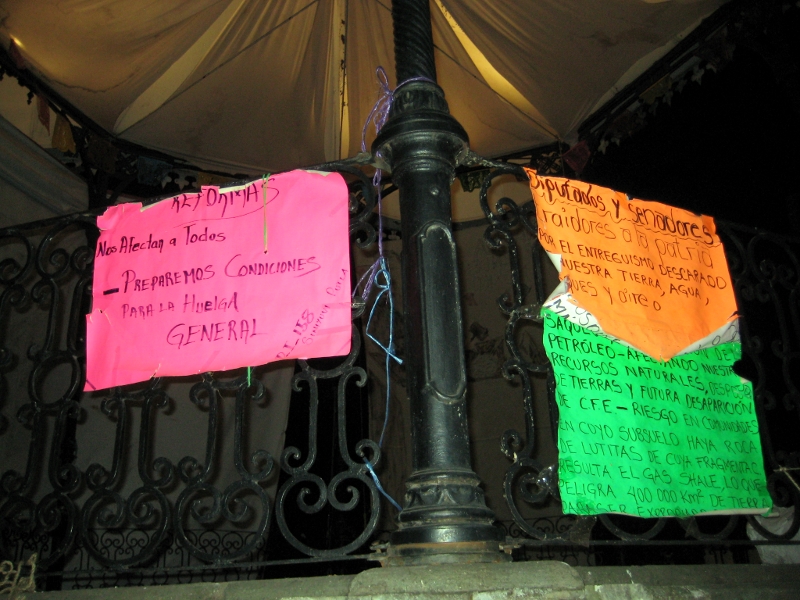 REFORMAS
Nos Afectan a Todos
- PREPAREMOS CONDICIONES
PARA LA HUELGA
GENERAL
Diputados y senadores
raidores a la patria
POR EL ENTREGUISMO DESCARADO
NUESTRA TIERRA, AGUA,
aire o
PETRÓLEO-
RECURSOS NATURALES,
DE TIERRAS Y FUTURA DESAPARICIÓN
DE C.F.E - RIESGO EN COMUNIDADES
EN CUYO SUBSUELO HAYA ROCA
DE LUTITAS DE CUYA FRAGMENTAC
RESULTA EL GAS SHALE, LO QUE
PELIGRA 400 000 KM² DE TIERRA